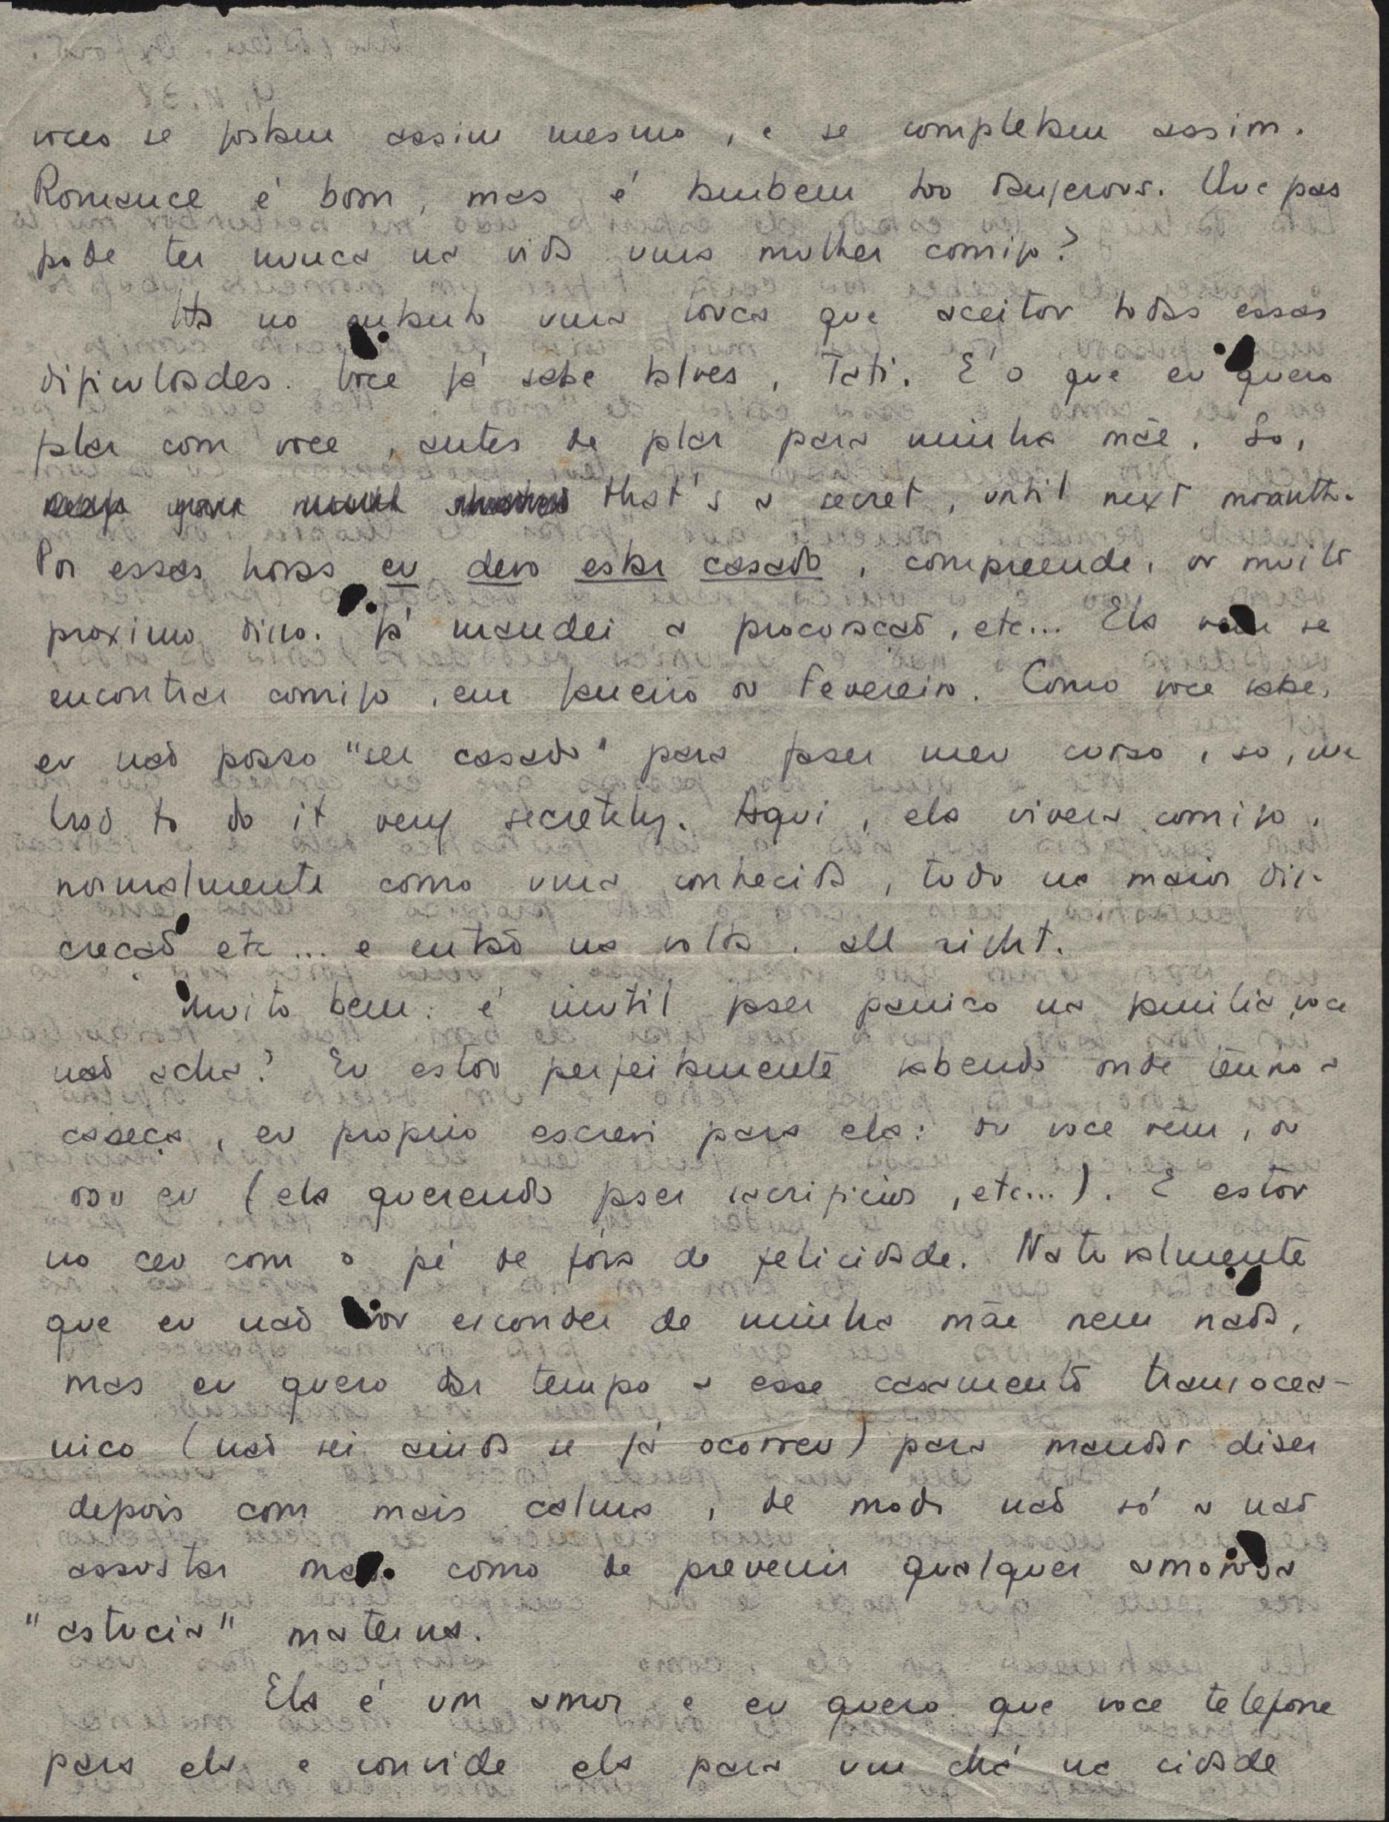 voces se gostam assim mesmo, e se completam assim.
Romance é bom, mas é tambem too dangerous. Que paz
pode ter nunca na vida uma mulher comigo?
Ha no entanto uma louca que aceitou todas essas
dificuldades. Voce já sabe talves, Tati. E' o que eu quero
falar com voce, antes de falar para minha mãe. So,
that's a secret, until next month.
Por essas horas eu devo estar casado, compreende, ou muito
proximo disso. Já mandei a procuração, etc... Ela vem se
encontrar comigo, em Janeiro ou Fevereiro. Como voce sabe,
eu naõ posso "ser casado" para faser meu curso, so, we
had to do it very secretely. Aqui, ela viverá comigo,
normalmente como uma conhecida, tudo na maior dis-
creçaõ etc... e entaõ na volta, all right.
Muito bem: é inutil faser panico na familia, voce
naõ acha? Eu estou perfeitamente sabendo onde tenho a
cabeça, eu proprio escrevi para ela: ou voce vem, ou
vou eu (ela querendo faser sacrificios, etc...). E estou
no ceu com o pé de fóra de felicidade. Naturalmente
que eu naõ vou esconder de minha mãe nem nada,
mas eu quero dar tempo a esse casamento transocea-
nico (naõ sei ainda se já ocorreu) para mandar diser
depois com mais calma, de modo naõ só a naõ
assustar mas como de prevenir qualquer amorosa
"astucia" materna.
Ela é um amor e eu quero que voce telefone
para ela e convide ela para um chá na cidade